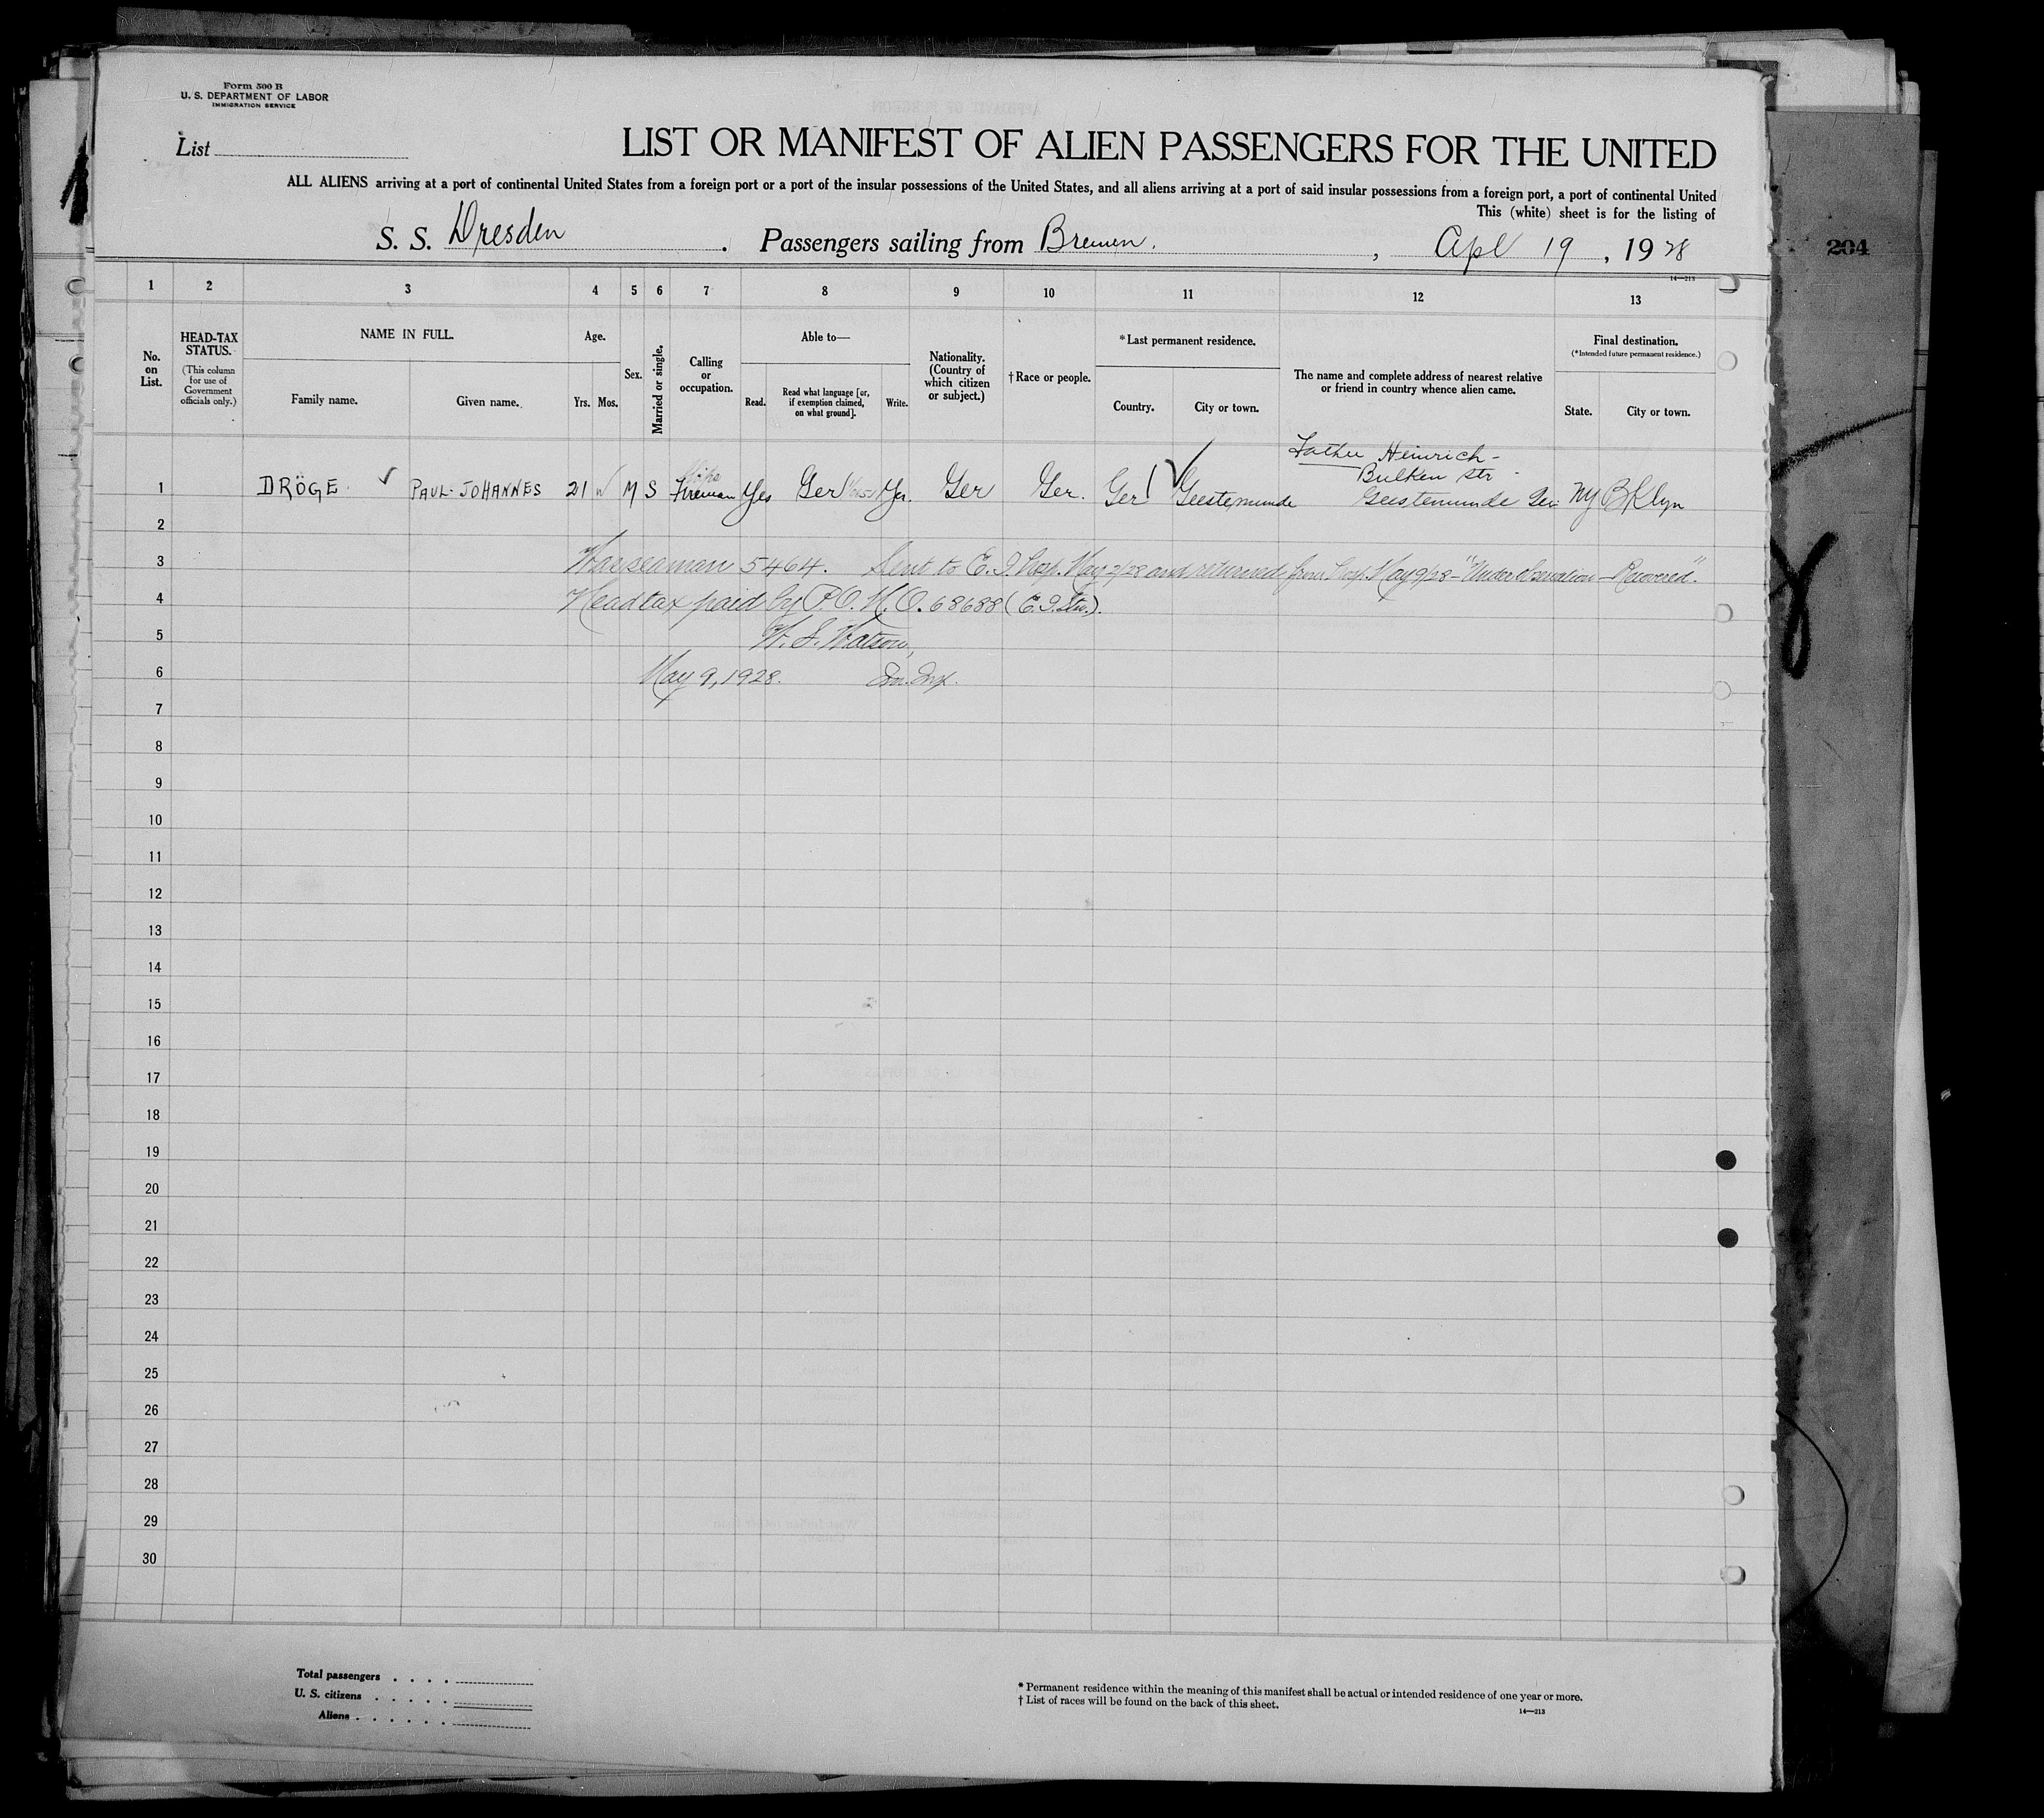 Form 500 B
U. S. DEPARTMENT OF LABOR
IMMIGRATION SERVICE
List
LIST OR MANIFEST OF ALIEN PASSENGERS FOR THE UNITED
ALL ALIENS arriving at a port of continental United States from a foreign port or a port of the insular possessions of the United States, and all aliens arriving at a port of said insular possessions from a foreign port, a port of continental United
This (white) sheet is for the listing of
S. S. Dresden . Passengers sailing from Bremen. , Apl 19 , 1928
204
14—213
1 2 3 4 5 6 7 8 9 10 11 12 13
No. on List.
HEAD-TAX STATUS.
(This column for use of Government officials only.)
NAME IN FULL.
Family name.
Given name.
Age.
Yrs. Mos.
Sex.
Married or single.
Calling or occupation.
Able to—
Read.
Read what language [or, if exemption claimed, on what ground].
Write.
Nationality. (Country of which citizen or subject.)
† Race or people.
* Last permanent residence.
Country.
City or town.
The name and complete address of nearest relative or friend in country whence alien came.
Final destination.
(*Intended future permanent residence.)
State.
City or town.
Father Heinrich -
Bulken Str
1 DRÖGE PAUL-JOHANNES 21 M S Fireman Yes Ger Yes. Ger Ger. Ger Geestemunde Geestemunde Ger. NY BKlyn
2
3 Was seaman 5464. Sent to E. I. Hosp. May 2/28 and returned from Hosp. May 9/28 - "Under Observation - Recovered".
4 Head tax paid by P. O. M. O. 68688 (E. I. Sta.).
5 W. J. Watson,
6 May 9, 1928. Im. Insp.
7
8
9
10
11
12
13
14
15
16
17
18
19
20
21
22
23
24
25
26
27
28
29
30
Total passengers . . . .
U. S. citizens . . . . .
Aliens . . . . . .
* Permanent residence within the meaning of this manifest shall be actual or intended residence of one year or more.
† List of races will be found on the back of this sheet.
14—213